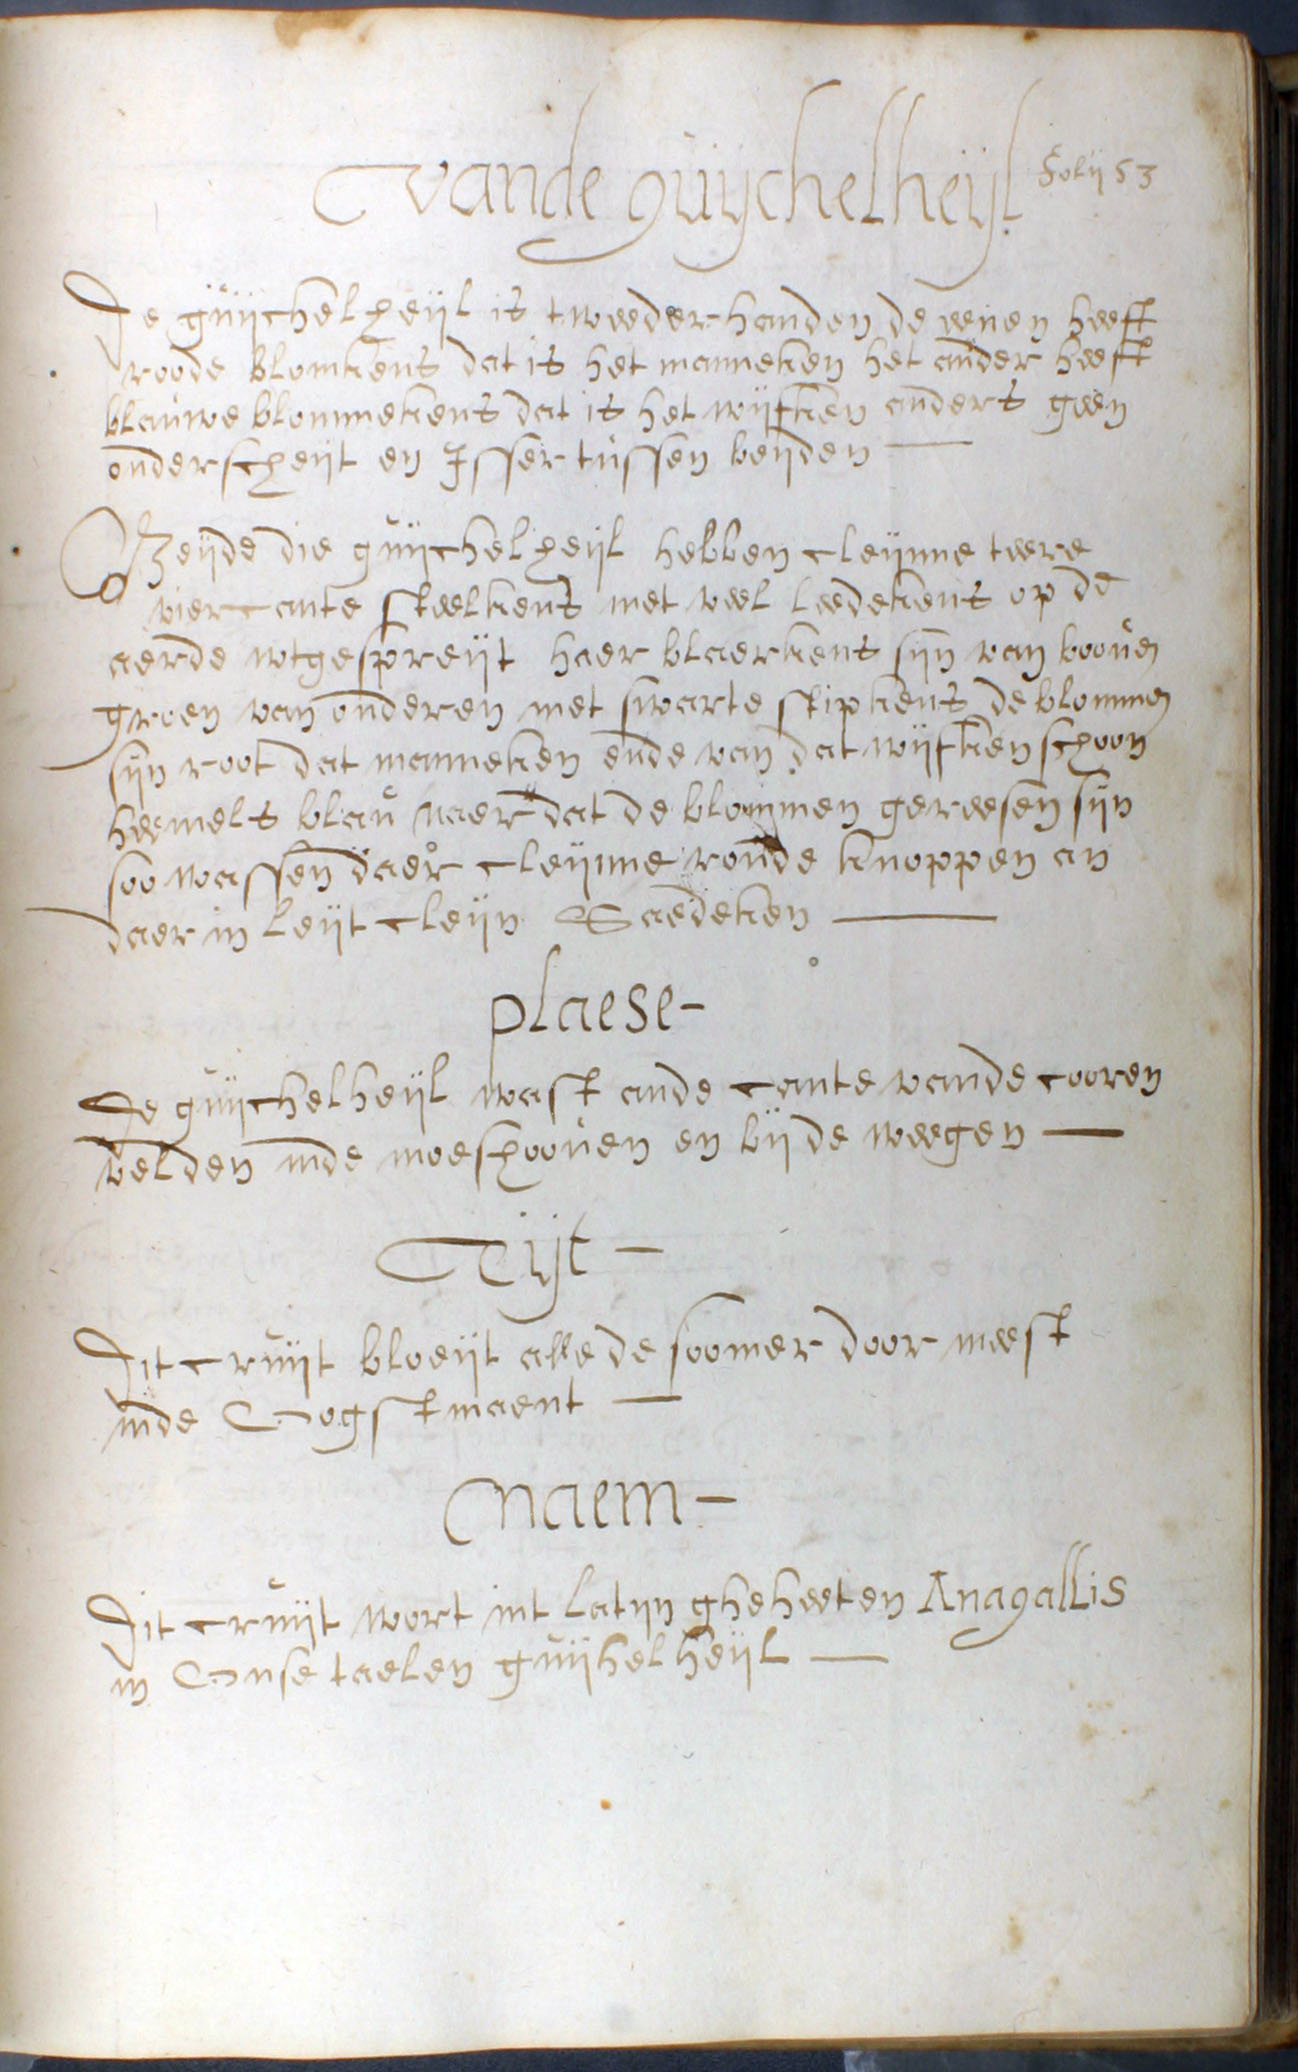 Vande guijchelheijl
Folij 53
De guijchelheijl is tweederhanden de eenen heeft
roode blomkens dat is het manneken het ander heeft
blauwe blommekens dat is het wijfken anders geen
onderscheijt en Isser tussen beijden
Beijde die guijchelheijl hebben cleijnne teere
viercante steelkens met veel leedekens op de
aerde wtgespreijt haer blaerkens sijn van booven
groen van onderen met swarte stipkens de blommen
sijn root dat manneken ende van dat wijfken schoon
heemels blau naer dat de blommen geweesen sijn
soo wassen daer cleijnne ronde knoppen an
daer in leijt cleijn Saedeken
plaese-
De guijchelheijl wast ande cante vande cooren
velden inde moeshooven en bij de weegen
Tijt-
Dit cruijt bloeijt alle de soomer door meest
inde Oogstmaent
Naem-
Dit cruijt wort int latijn gheheeten Anagallis
in Onse taelen guijhelheijl